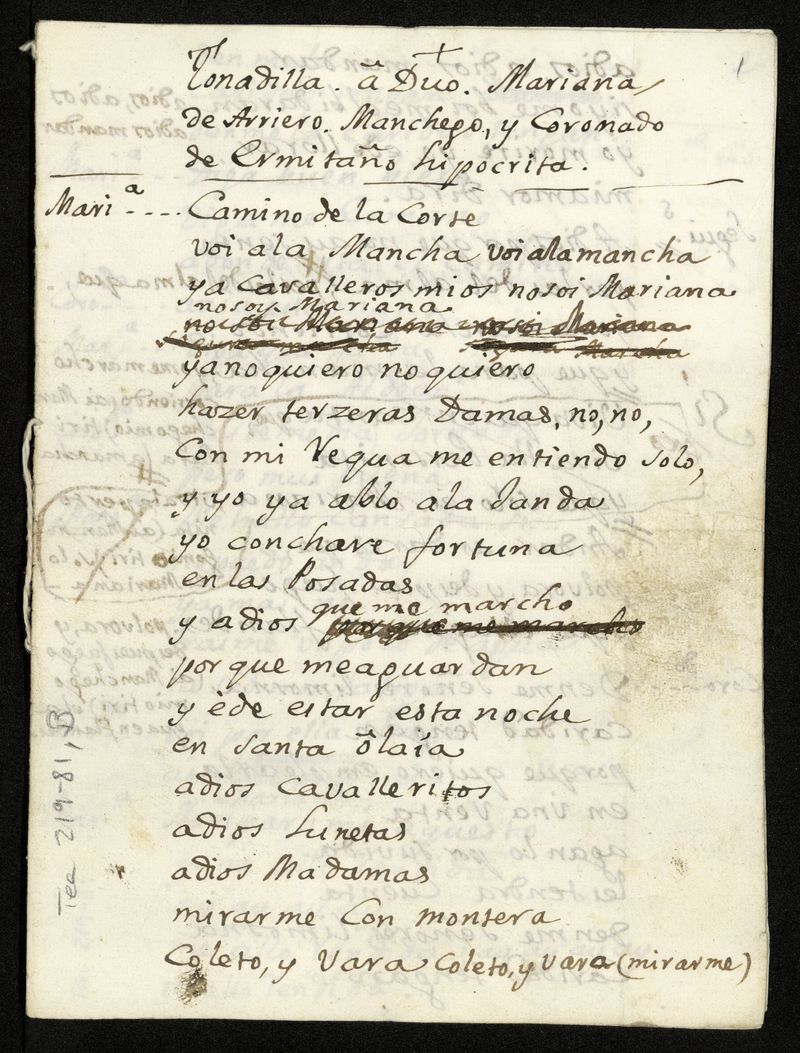 1
Tonadilla. â Duo. Mariana
de Arriero. Manchego, y Coronado
de Ermitaño hipocrita.
Mari.ª ---- Camino de la Corte
voi ala Mancha voi alamancha
ya Cavalleros mios nosoi Mariana
nosoy Mariana
no soi Mariana nosoi Mariana
ya no quiero no quiero
hazer terzeras Damas, no, no,
Con mi Yegua me entiendo solo,
y yo ya ablo ala Janda
yo conchave fortuna
en las Posadas
que me marcho
y adios porque me marcho
por que meaguardan
y ède estar esta noche
en Santa ôlaía
adios Cavalleritos
adios Lunetas
adios Madamas
mirarme Con montera
Coleto, y Vara Coleto, y Vara (mirarme)
Tea 219-81, B